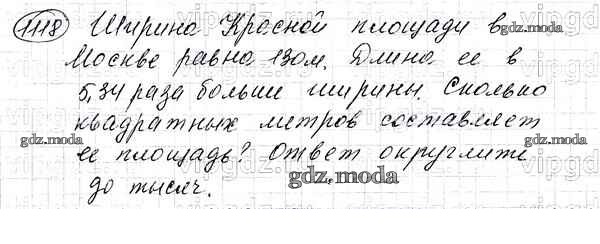 1118 Ширина Красной площади в
Москве равна 130м. Длина ее в
5,34 раза больше ширины. Сколько
квадратных метров составляет
ее площадь? Ответ округлите
до тысяч.
gdz.moda
gdz.moda
gdz.moda
gdz.moda